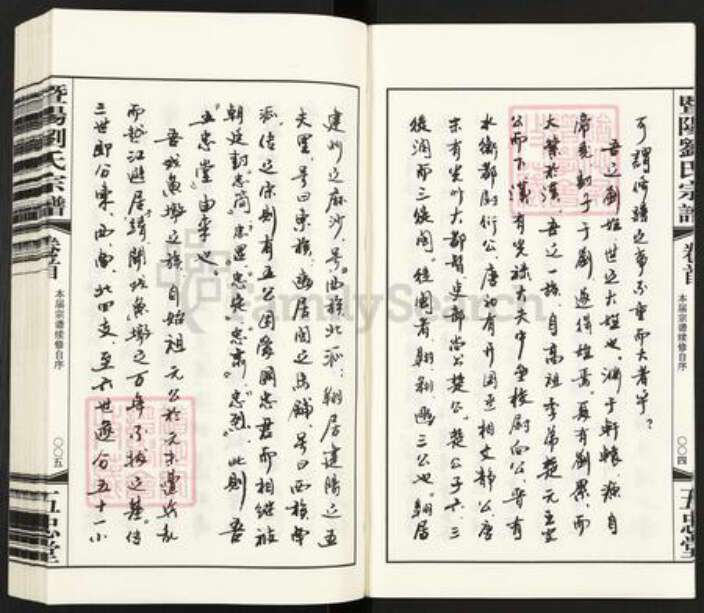 暨陽劉氏宗譜
卷首
本届宗谱续修自序
〇〇四
五忠堂
可謂修譜之事不重而大者乎？
吾之劉姓世之大姓也。溯于軒轅，源自
帝堯，封子于劉，遂得姓焉。夏有劉累，而
大蕃於漢。吾之一族，自高祖季弟楚元王交
公而下，漢有光祿大夫中壘校尉向公，晋有
水衡都尉衍公，唐初有开国丞相文静公，唐
末有光州大都督吏部尚公楚公。楚公子六，三
後潤而三後閩。後閩者，翱、翔、豳三公也。翱居
建州之麻沙，号曰西族北派；翔居建陽之五
夫里，号曰東族；豳居閩之馬鋪，号曰西族南
派。傳之宋，則有五公因愛國忠君而相继被
朝廷封忠简、忠定、忠肃、忠烈，此則吾
五忠堂由来也。
吾戏鱼墩之族，自始祖元公於元末遭战乱
而越江避居，肇開戏鱼墩之百年不拔之基。传
三世即分東、西、南、北四支，至十六世遂分五十一小
暨陽劉氏宗譜
卷首
本届宗谱续修自序
〇〇五
五忠堂
FamilySearch